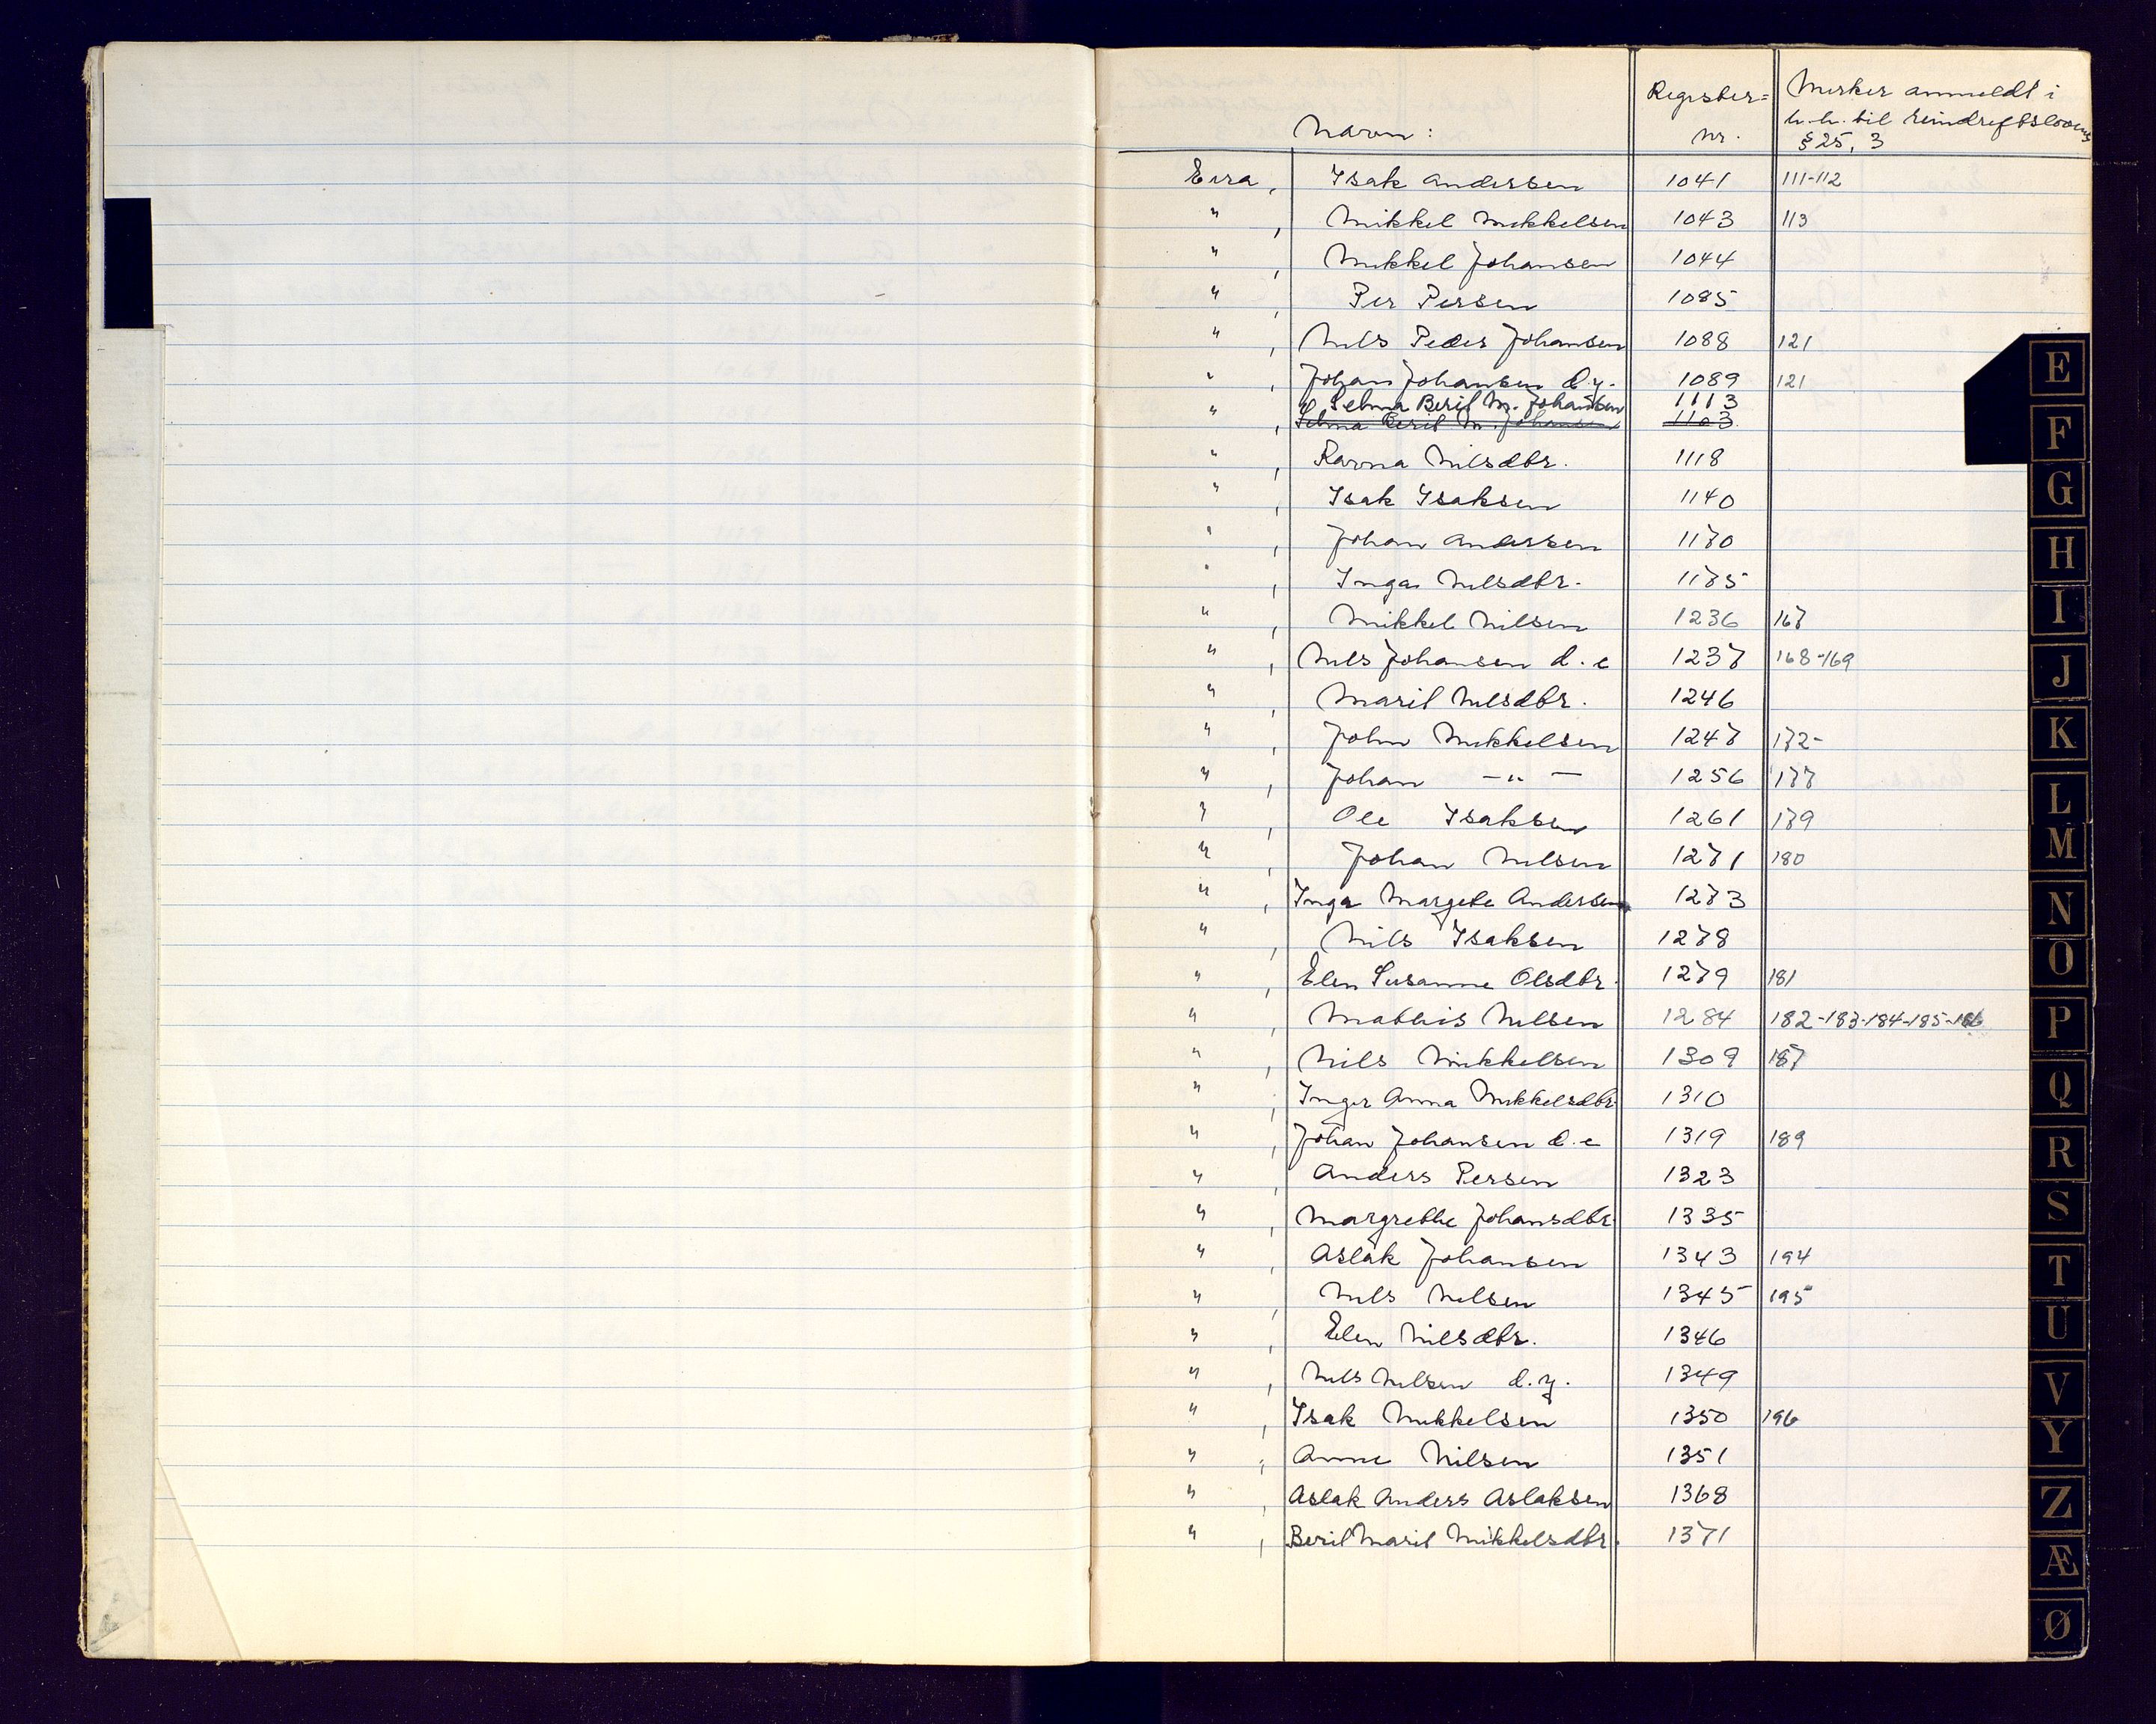 Navn :
Register=
nr.
Merker anmeldt i
h.h. til reindriftslovens
§ 25, 3
Eira , Isak Andersen 1041 111-112
" , Mikkel Mikkelsen 1043 113
" , Mikkel Johansen 1044
" , Per Persen 1085
" , Nils Peder Johansen 1088 121
" , Johan Johansen d.y. 1089 121
" Selma Berit M. Johansen 1113
" , Selma Berit M. Johansen 1103
" , Ravna Nilsdtr. 1118
" , Isak Isaksen 1140
" , Johan Andersen 1170
" , Inga Nilsdtr. 1175
" , Mikkel Nilsen 1236 167
" , Nils Johansen d.e 1237 168-169
" , Marit Nilsdtr. 1246
" , John Mikkelsen 1247 172-
" , Johan -"- 1256 177
" , Ole Isaksen 1261 179
" , Johan Nilsen 1271 180
" , Inga Margete Andersen 1273
" , Nils Isaksen 1278
" , Elen Susanne Olsdtr. 1279 181
" , Mathis Nilsen 1284 182-183-184-185-186
" , Nils Mikkelsen 1309 187
" , Inger Anna Mikkelsdtr. 1310
" , Johan Johansen d.e 1319 189
" , Anders Persen 1323
" , Margrethe Johansdtr. 1335
" , Aslak Johansen 1343 194
" , Nils Nilsen 1345 195
" , Elen Nilsdtr. 1346
" , Nils Nilsen d.y. 1349
" , Isak Mikkelsen 1350 196
" , Anne Nilsen 1351
" , Aslak Anders Aslaksen 1368
" , Berit Marit Mikkelsdtr. 1371
E
F
G
H
I
J
K
L
M
N
O
P
Q
R
S
T
U
V
Y
Z
Æ
Ø